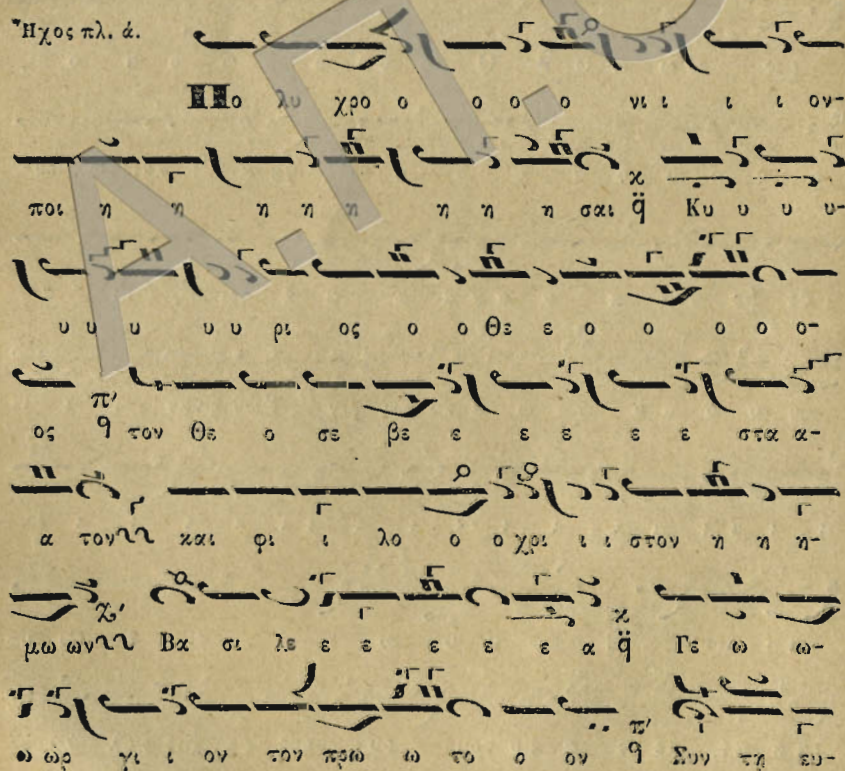 Ἦχος πλ. ά.
Πο λυ χρο ο ο ο ο νι ι ι ι ι ον-
ποι η η η η η η η η σαι ϰ q̈ Κυ υ υ υ-
υ υ υ υ υ ρι ος ο ο Θε ε ο ο ο ο ο-
ος π' q τον Θε ο σε βε ε ε ε ε ε στα α-
α τον και φι ι λο ο ο χρι ι ι στον η η η-
μω ων Βα σι λε ε ε ε ε ε α ϰ q̈ Γε ω ω-
ω ωρ γι ι ον τον πρω ω το ο ον π' q Συν τη ευ-
Α.Π.